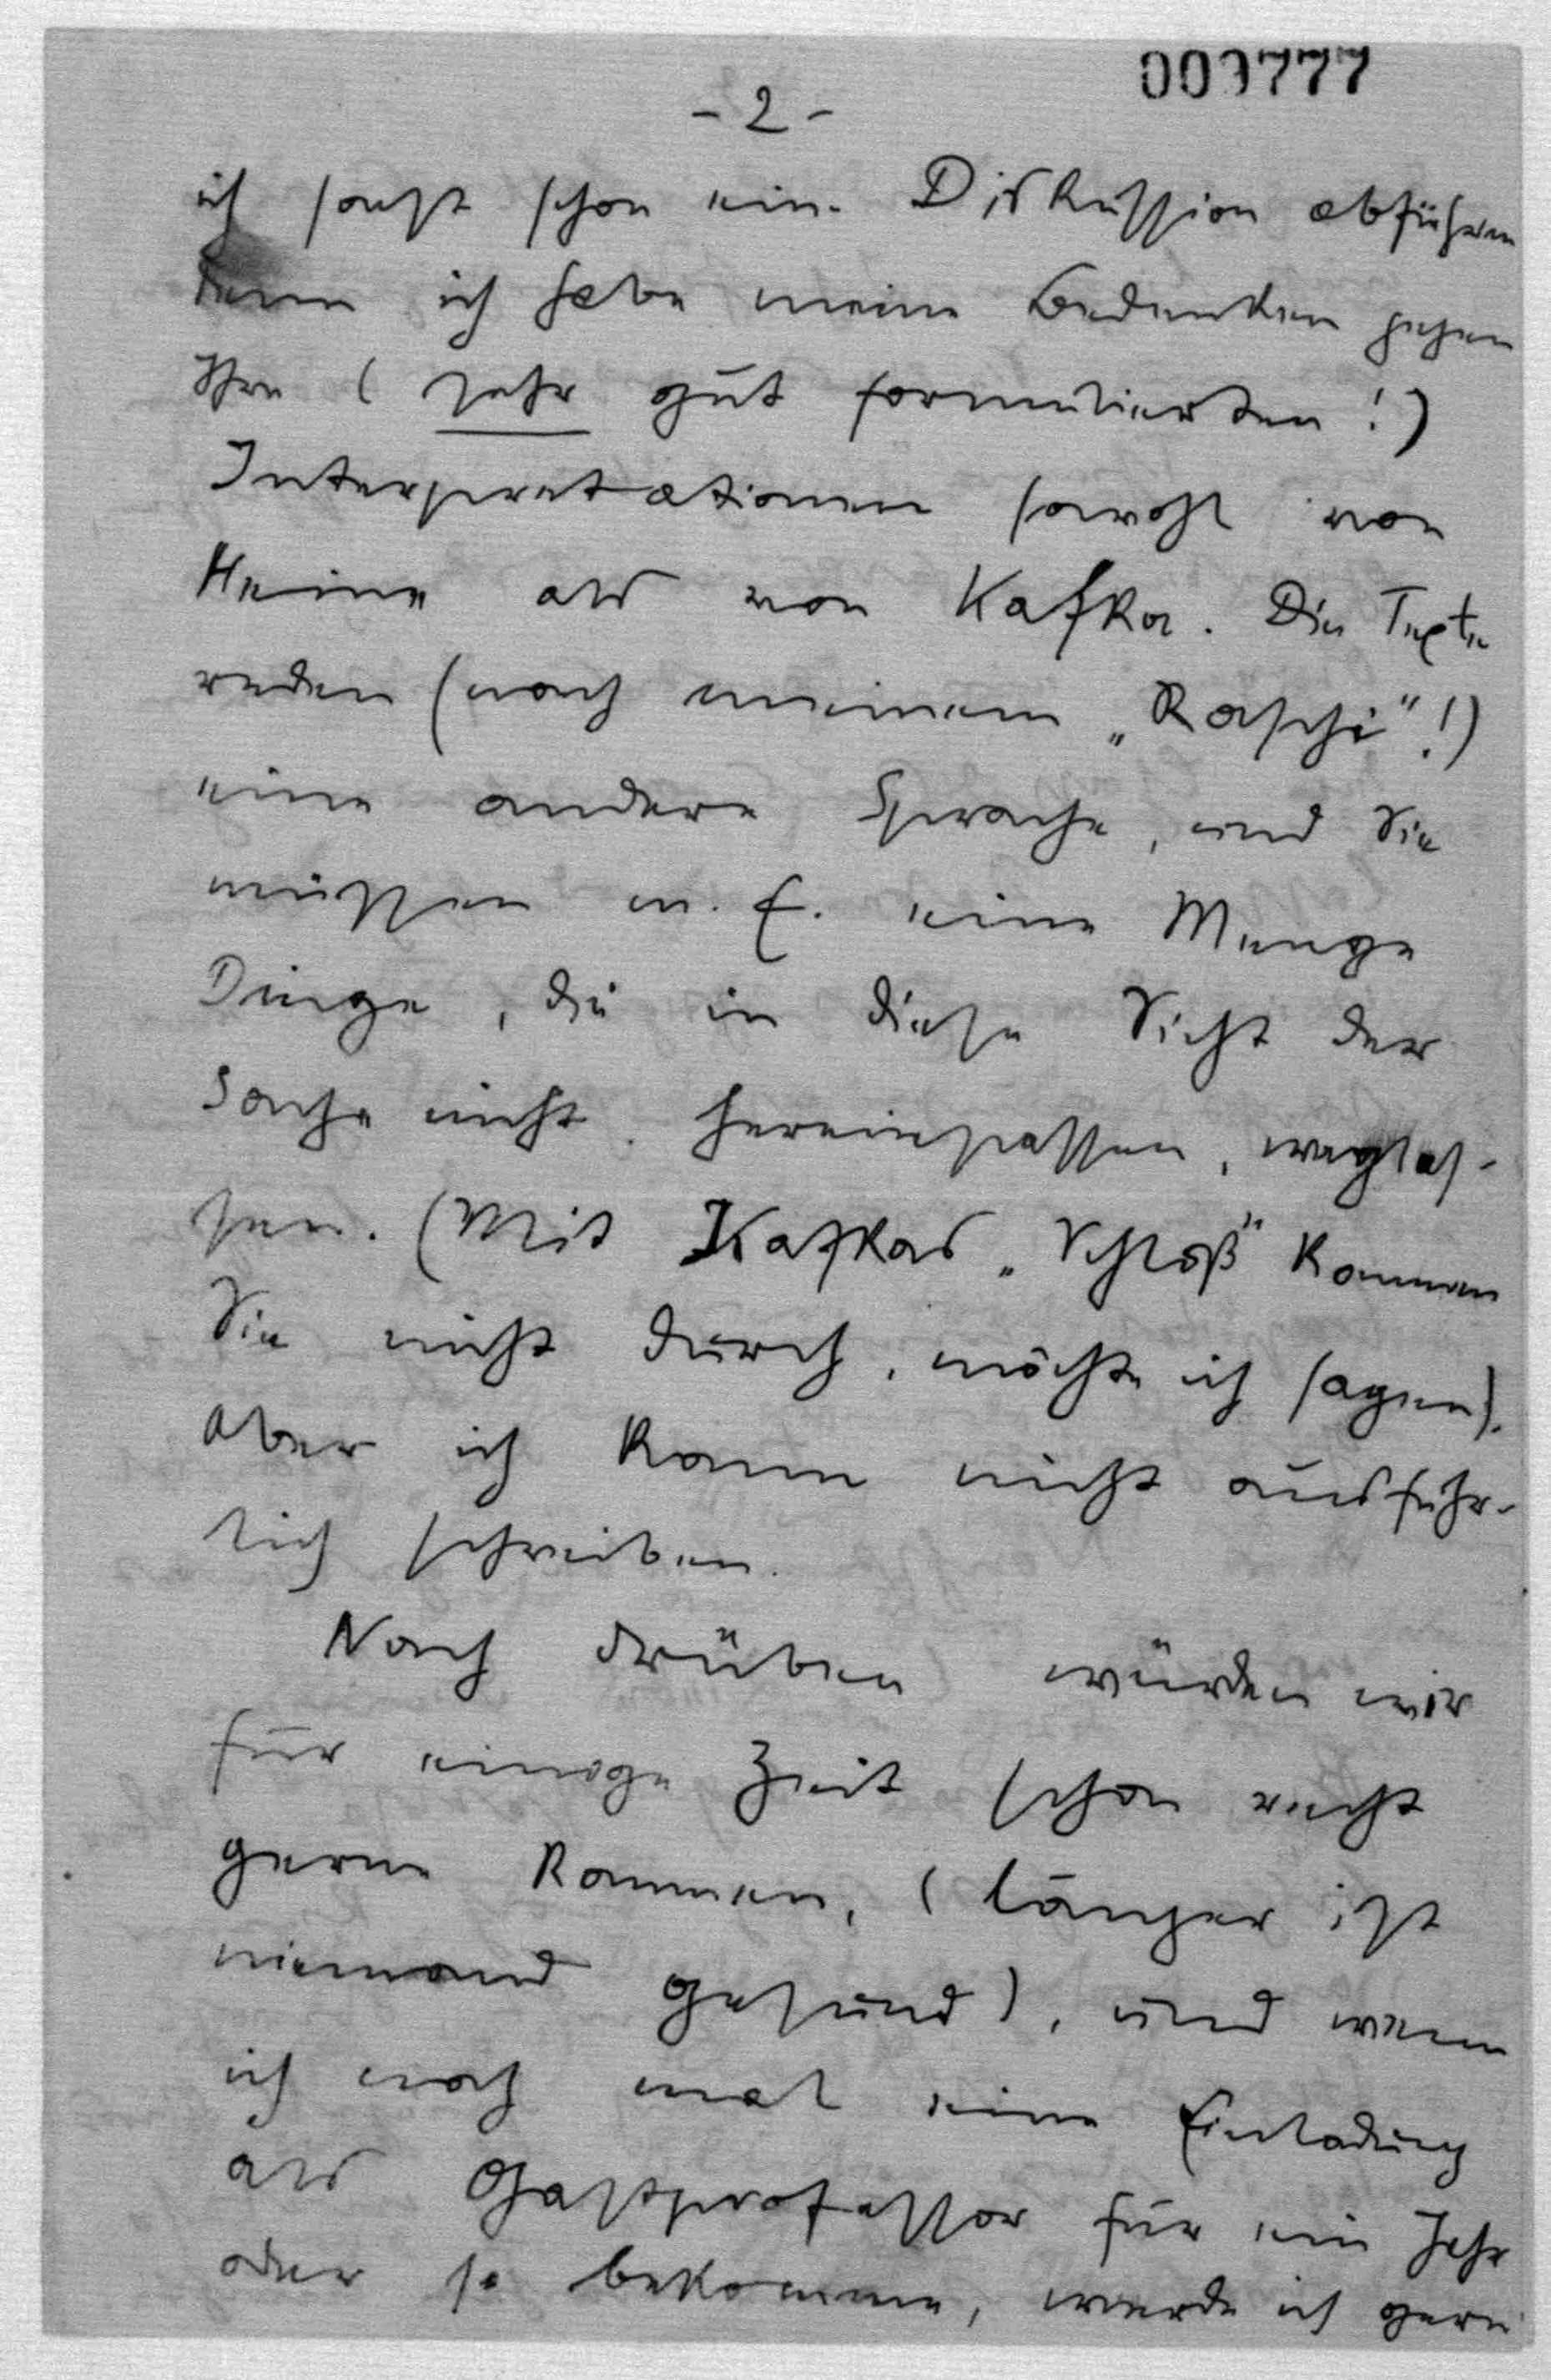 009777
- 2 -
ich sonst schon eine Diskussion abführen
denn ich habe meine Bedenken gegen
Ihre (sehr gut formulierten!)
Interpretationen sowohl von
Heine als von Kafka. Die Texte
reden (nach meinem „Raschi"!)
eine andere Sprache, und Sie
müssen m. E. eine Menge
Dinge, die in diese Sicht der
Sache nicht hereinpassen, weglas-
sen. (Mit Kafkas „Schloß" kommen
Sie nicht durch, möchte ich sagen).
Aber ich kann nicht ausführ-
lich schreiben.
Nach drüben würden wir
für einige Zeit schon recht
gerne kommen, (länger ist
niemand gesund), und wenn
ich noch mal eine Einladung
als Gastprofessor für ein Jahr
oder so bekomme, werde ich gern